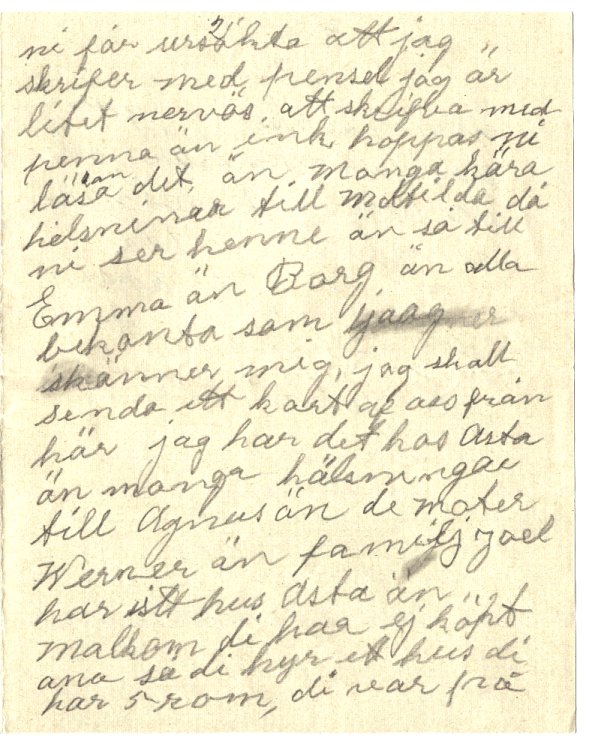 ni får ursäkta att jag
skrifer med pensel jag är
litet nervös, att skrifva med
penna än ink, hoppas ni
kan läsa det, än manga kära
helsninar till Matilda då
ni ser henne än så till
Emma än Borg än alla
bekanta som
skänner mig, jag skall
senda ett kart af oss från
här jag har det hos Asta
än manga hälsningar
till Agnus än de moter
Werner än familj Joel
har itt hus Asta än
malkom di har ej köpt
ana så di hyr ett hus di
har 5 rom, di var frå